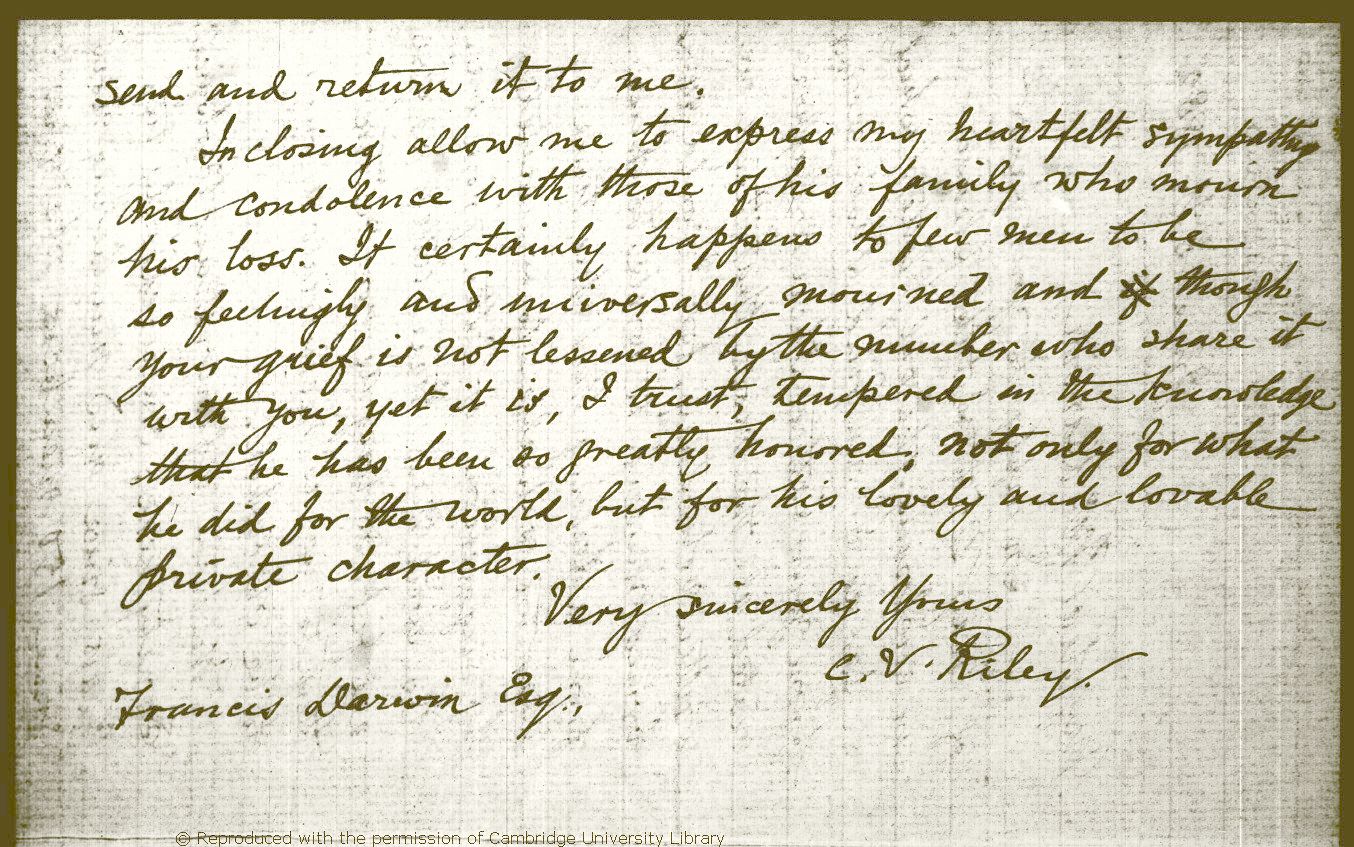 send and return it to me.
In closing allow me to express my heartfelt sympathy
and condolence with those of his family who mourn
his loss. It certainly happens to few men to be
so feelingly and universally mourned and if though
your grief is not lessened by the number who share it
with you, yet it is, I trust, tempered in the knowledge
that he has been so greatly honored, not only for what
he did for the world, but for his lovely and lovable
private character.
Very sincerely Yours
C. V. Riley.
Francis Darwin Esq.,
© Reproduced with the permission of Cambridge University Library